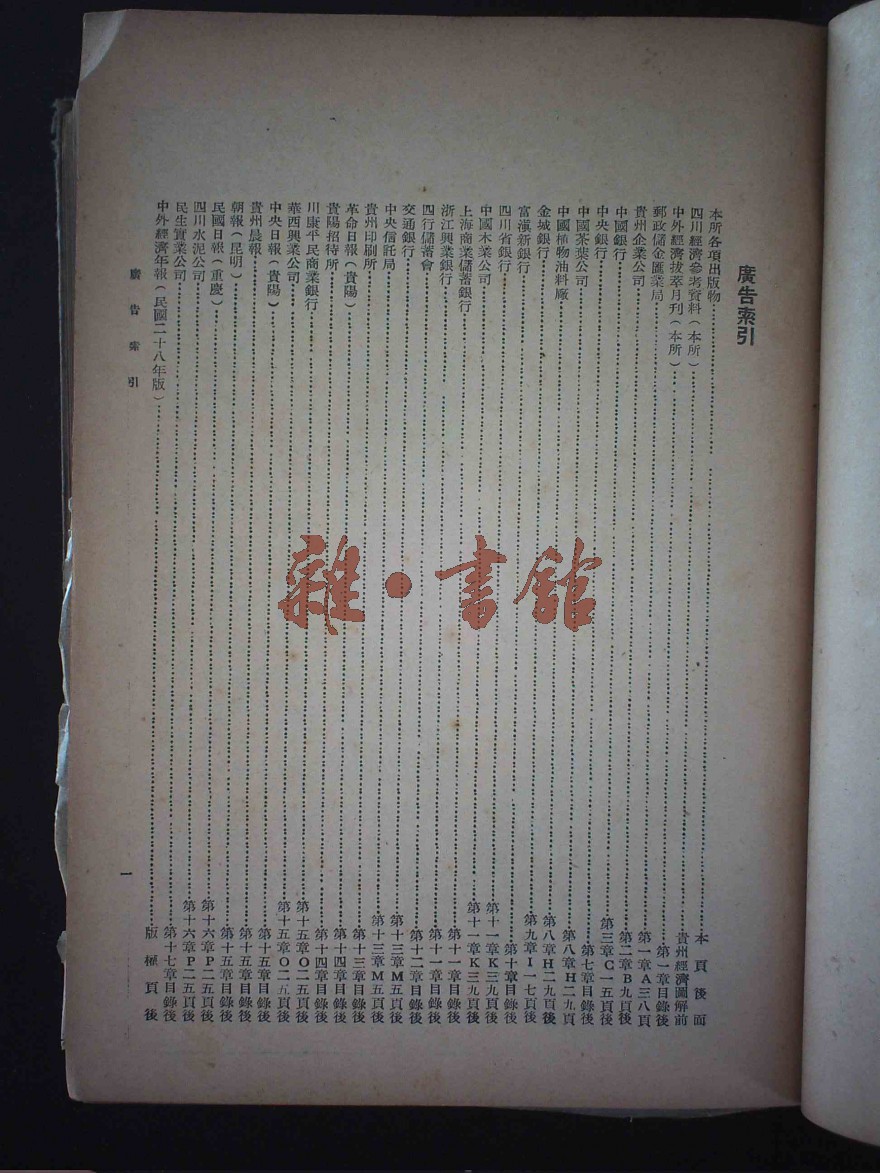 廣告索引
本所各項出版物……本頁後面
四川經濟參考資料(本所)……貴州經濟圖解前
中外經濟拔萃月刊(本所)……第一章目錄後
郵政儲金匯業局……第一章A三八頁
貴州企業公司……第二章B九頁後
中國銀行……第三章C一五頁後
中央銀行……第七章目錄後
中國茶葉公司……第八章H二九頁
中國植物油料廠……第八章H二九頁後
金城銀行……第九章I一七頁後
富滇新銀行……第十章目錄後
四川省銀行……第十一章K三九頁後
中國木業公司……第十一章K三九頁後
上海商業儲蓄銀行……第十一章目錄後
浙江興業銀行……第十一章目錄後
四行儲蓄會……第十二章目錄後
交通銀行……第十三章M五頁後
中央信託局……第十三章M五頁後
貴州印刷所……第十三章目錄後
革命日報(貴陽)……第十四章目錄後
貴陽招待所……第十四章目錄後
川康平民商業銀行……第十五章O二五頁後
華西興業公司……第十五章O二五頁後
中央日報(貴陽)……第十五章目錄後
貴州晨報……第十五章目錄後
朝報(昆明)……第十五章目錄後
民國日報(重慶)……第十六章P二五頁後
四川水泥公司……第十六章P二五頁後
民生實業公司……第十七章目錄後
中外經濟年報(民國二十八年版)……版權頁後
廣告索引
一
雜·書館